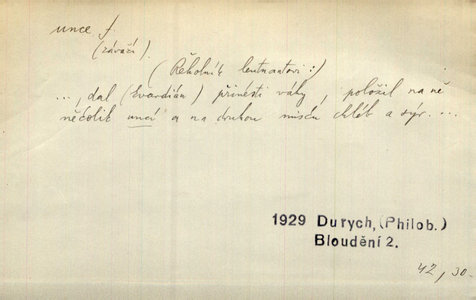 unce f.
(závaží).
(Řeholník leutnantovi :)
..., dal (kvardián) přinésti váhy, položil na ně
několik uncí a na druhou misku chléb a sýr. ...
1929 Durych, (Philob.)
Bloudění 2.
42, 30-